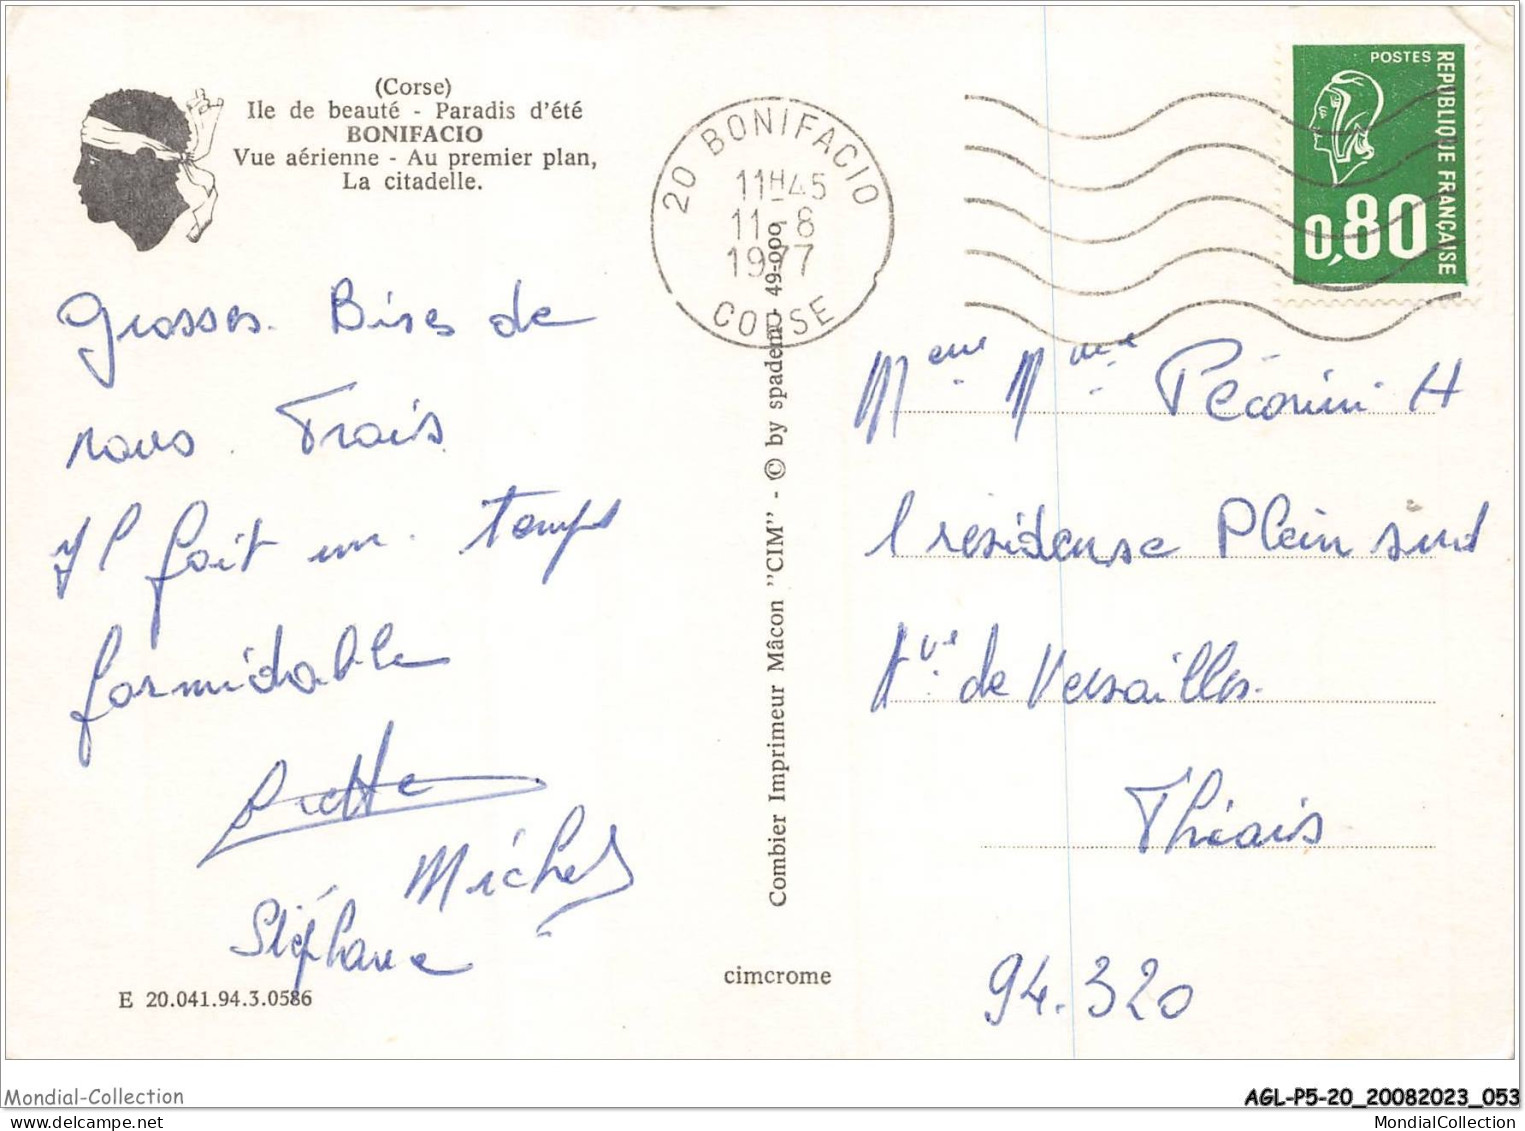 (Corse)
Ile de beauté - Paradis d'été
BONIFACIO
Vue aérienne - Au premier plan,
La citadelle.
20 BONIFACIO
11H45
11-8
1977
CORSE
POSTES
REPUBLIQUE FRANÇAISE
0,80
Grosses Bises de
nous Trois
Il fait un temps
formidable
Michel
Stéphane
E 20.041.94.3.0586
Combier Imprimeur Mâcon "CIM" - © by spadem - 49-009
cimcrome
M et Mme Péconini H
1 residense Plein sud
Ave de Versailles
Thiais
94.320
Mondial-Collection
AGL-P5-20_20082023_053
MondialCollection